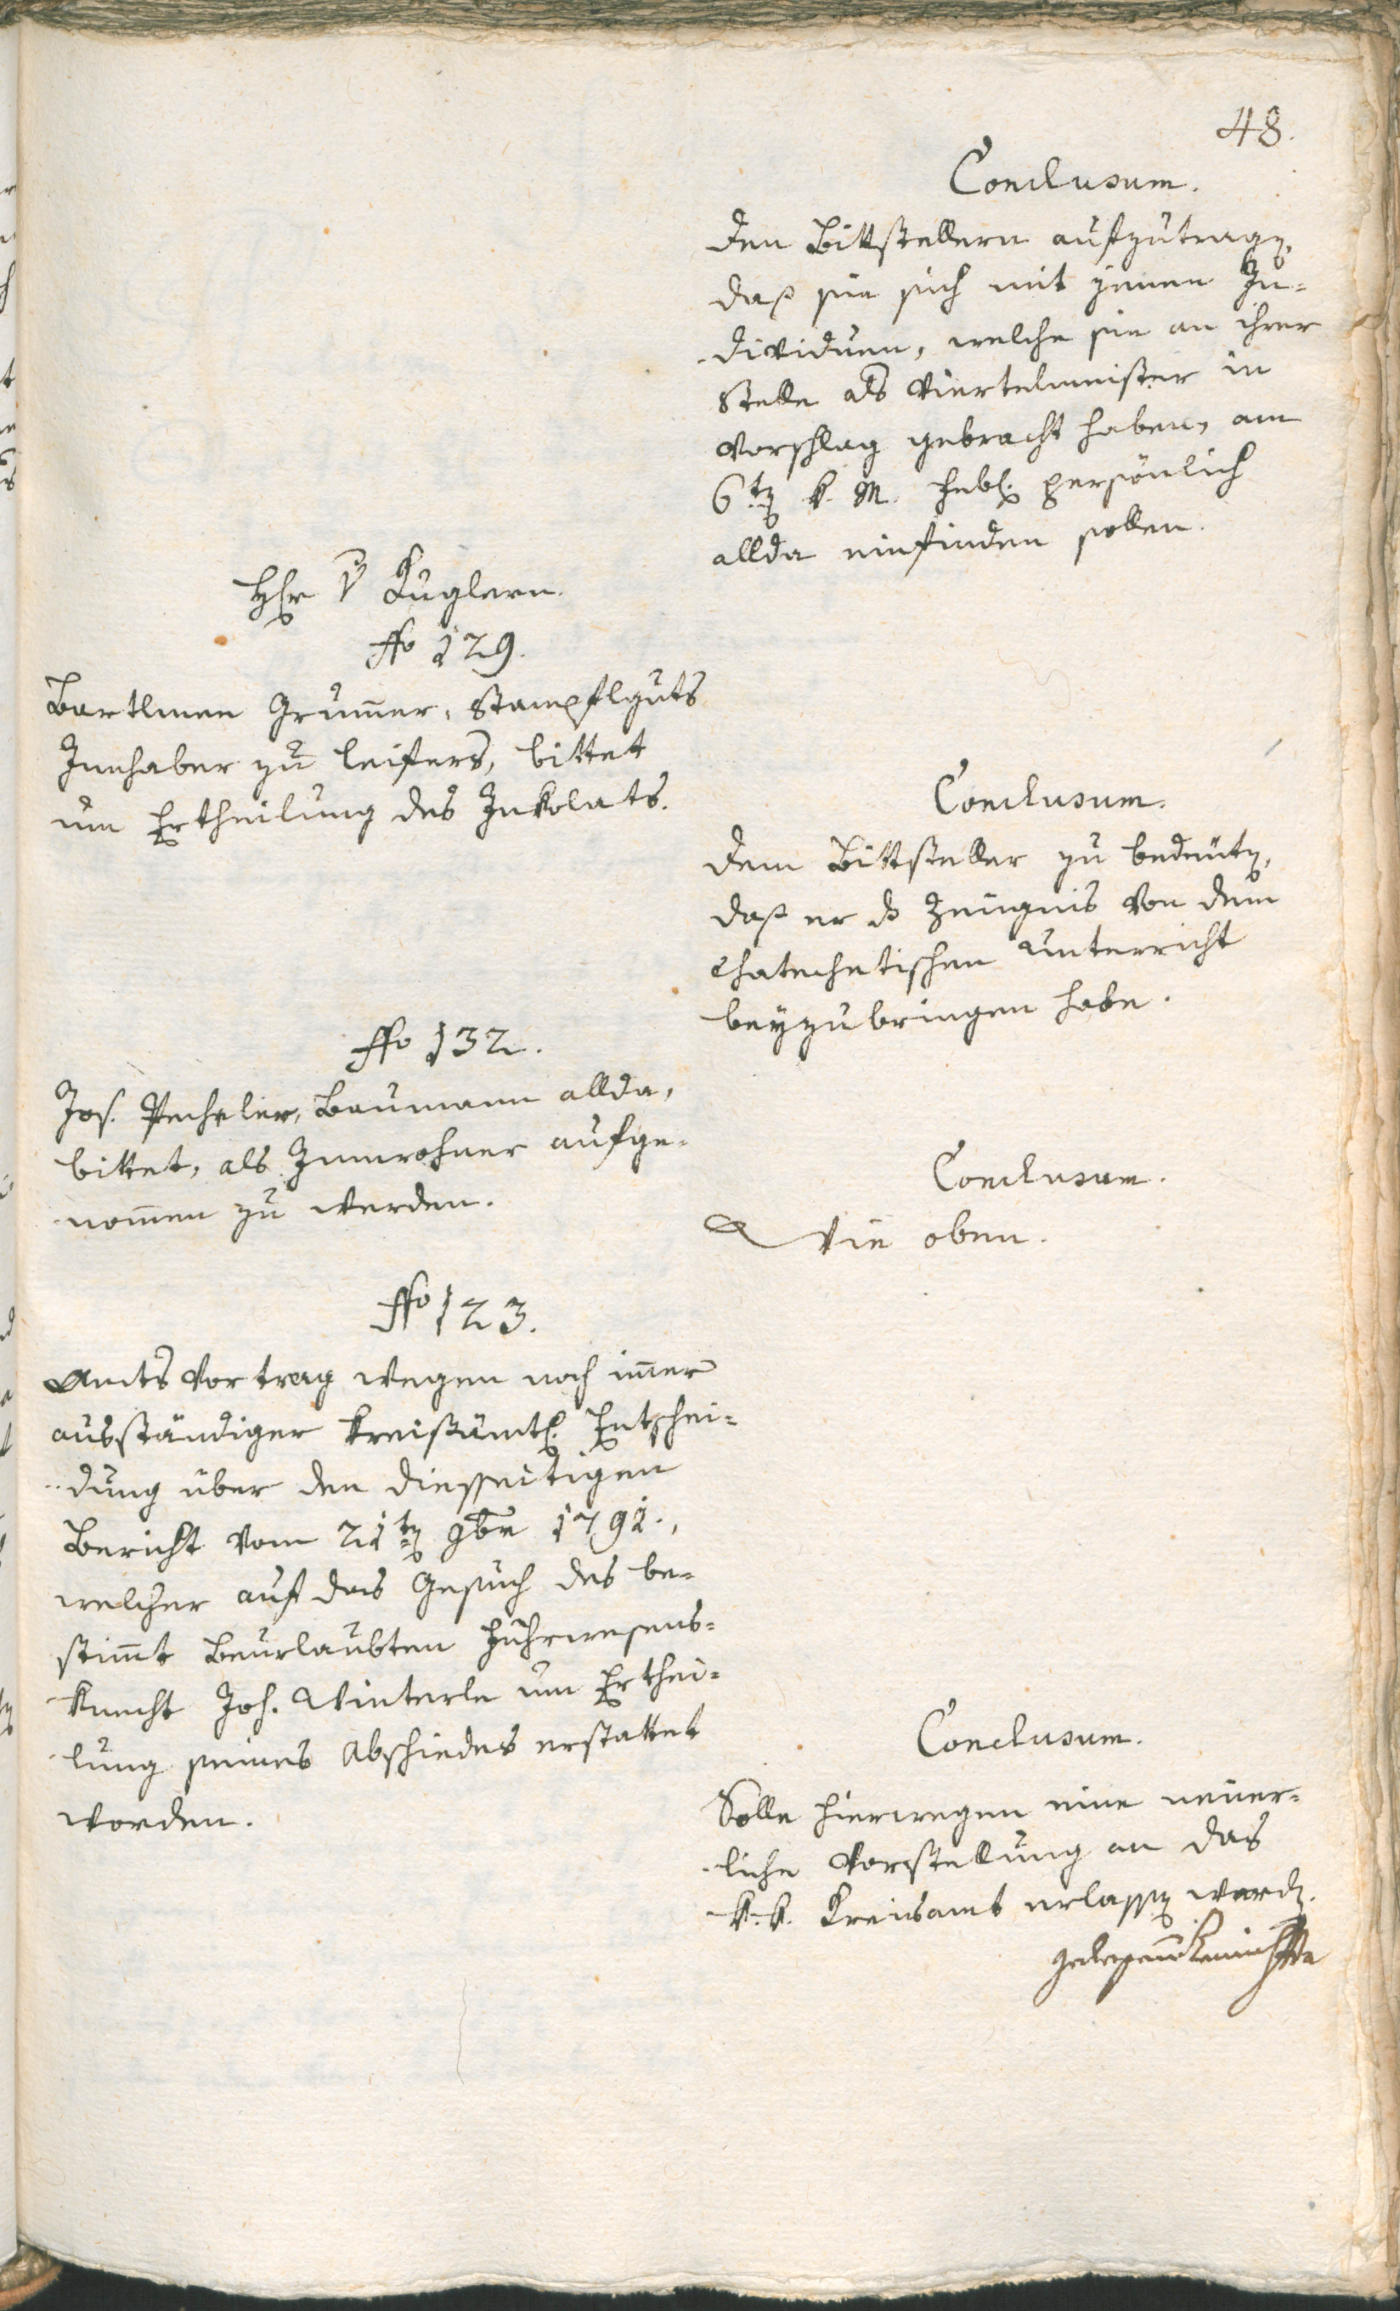 48.
Conclusum.
den Bittstellern aufzutragen,
daß sie sich mit jenen In=
dividuen, welche sie an ihrer
Stelle als Viertelmeister in
Vorschlag gebracht haben, am
6ten k. M. persönlich
allda einfinden sollen.
Hr v Kuglern.
No 129.
Bartlmee Grummer, Stampflguts
Innhaber zu Leifers, bittet
um Ertheilung des Inkolats.
Conclusum.
dem Bittsteller zu bedeuten,
daß er das Zeugnis von dem
Chatechetischen Unterricht
beyzubringen habe.
No 132.
Jos. Pecheler, Baumann allda,
bittet, als Innwohner aufge=
nommen zu werden.
Conclusum.
Wie oben.
No 123.
Amts Vortrag wegen noch immer
ausständiger kreißämtl. Entschei=
dung über den diesseitigen
Bericht vom 21ten 9ber 1791.,
welcher auf das Gesuch des be=
stimmt Beurlaubten Fuhrwesens=
knecht Joh. Winterle um Erthei=
lung seines Abschiedes erstattet
worden.
Conclusum.
Solle hierwegen eine neuer=
liche Vorstellung an das
k. k. Kreisamt erlassen werden.